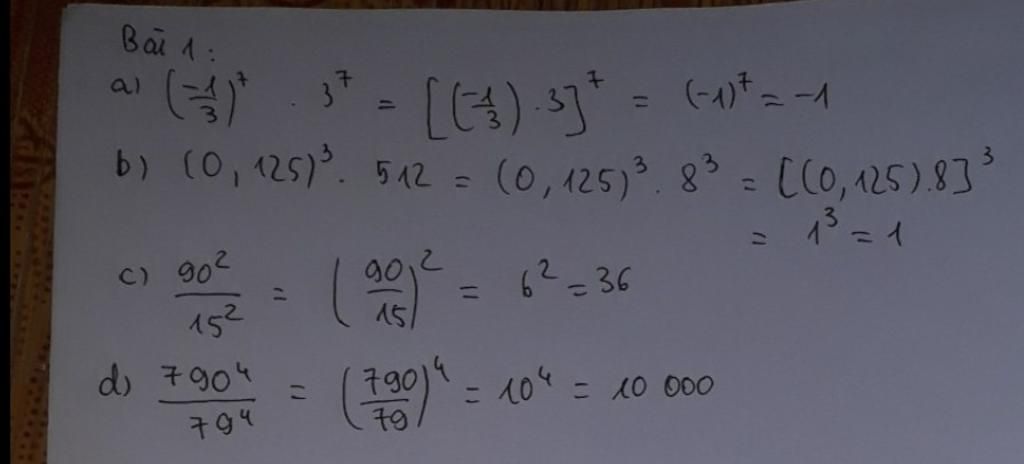 Bài 1:
a) (-1/3)^7 . 3^7 = [(-1/3) . 3]^7 = (-1)^7 = -1
b) (0,125)^3 . 512 = (0,125)^3 . 8^3 = [(0,125).8]^3
= 1^3 = 1
c) 90^2/15^2 = (90/15)^2 = 6^2 = 36
d) 790^4/79^4 = (790/79)^4 = 10^4 = 10 000